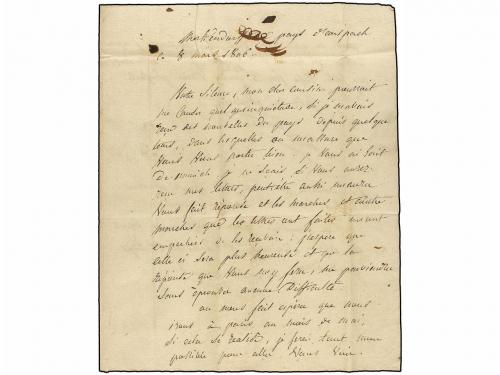 pays d'anspach
le 8 mars 1806.
Votre Silence, mon cher cousin pourrait
me causer quelqu'inquiétude, si je n'avais
reçu des nouvelles du pays depuis quelque
tems, dans lesquelles on m'assure que
Vous Vous portez bien. je Vous ai écrit
de munich je ne sais, si Vous aurez
reçu mes lettres, peut-être aussi
Vous fait réponse et les marches et contre
marches que les lettres ont faites m'ont
empeché de les recevoir: j'espère que
celle ci sera plus heureuse et que la
réponse que Vous me parviendra
Sans éprouver aucune Difficulté
on nous fait espérer que nous
irons à paris au mois de mai,
si cela se realise, je ferai tout mon
possible pour aller Vous Voir.